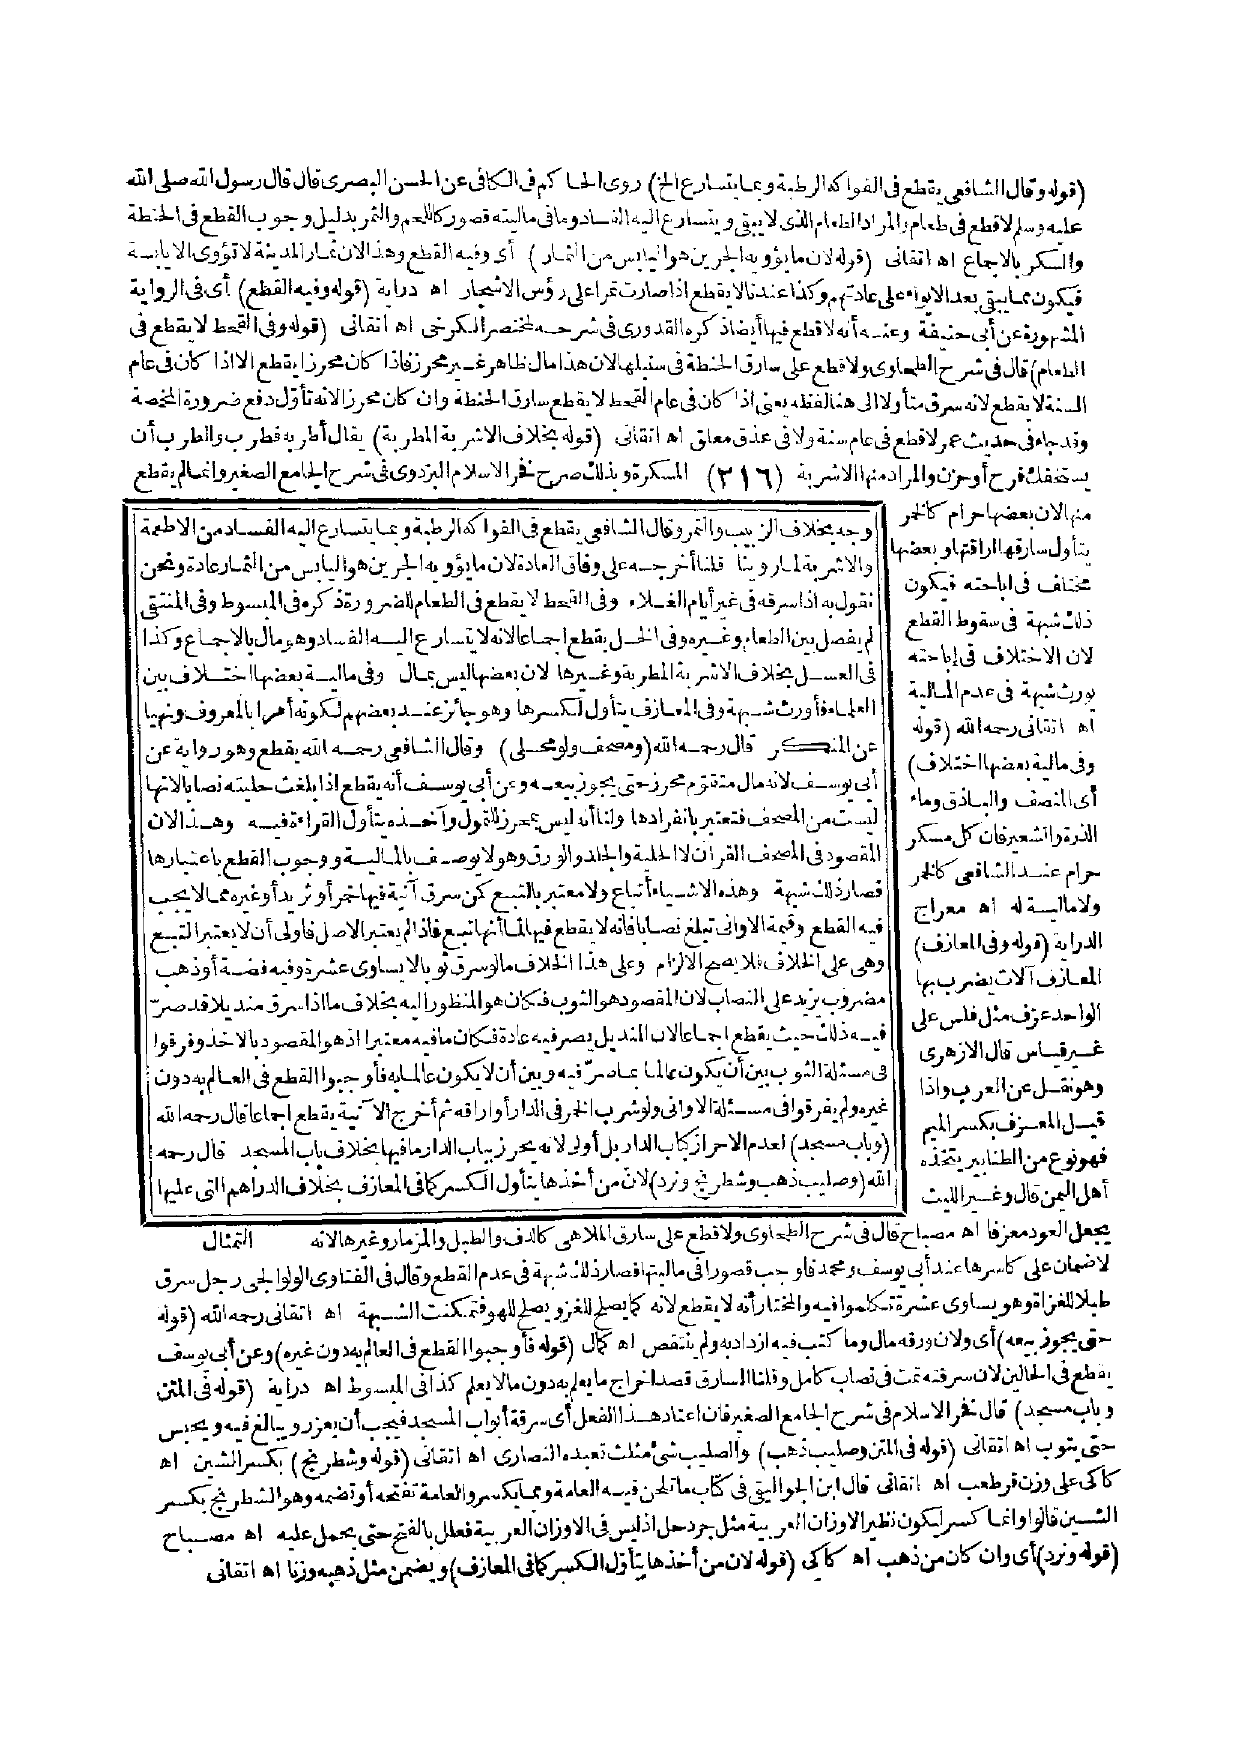 (قوله وقال الشافعي يقطع في الفواكه الرطبة وبما يتسارع الخ) روى الحاكم في الكافي عن الحسن البصري قال قال رسول الله صلى الله
عليه وسلم لا قطع في طعام والمراد الطعام الذي لا يبقى ويتسارع اليه الفساد وما في ماليته قصور كاللحم والثمر بدليل وجوب القطع في الحنطة
والسكر بالاجماع اه اتقاني (قوله لان ما يؤويه الجرين هو اليابس من الثمار) أي وفيه القطع وهذا لان ثمار المدينة لا تؤوى الا يابسة
فيكون مما يبقى بعد الايواء على عادتهم وكذا عندنا لا يقطع اذا صارت تمرا على رؤس الاشجار اه دراية (قوله وفيه القطع) أي في الرواية
المشهورة عن أبي حنيفة وعنه أنه لا قطع فيها أيضا ذكره القدوري في شرحه لمختصر الكرخي اه اتقاني (قوله وفي القحط لا يقطع في
الطعام) قال في شرح الطحاوي ولا قطع على سارق الحنطة في سنبلها لان هذا مال ظاهر غير محرز فاذا كان محرزا يقطع الا اذا كان في عام
السنة لا يقطع لانه سرق متأولا الى هنا لفظه يعني اذا كان في عام القحط لا يقطع سارق الحنطة وان كان محرزا لانه تأول دفع ضرورة المخمصة
وقد جاء في حديث عمر لا قطع في عام سنة ولا في عذق معلق اه اتقاني (قوله بخلاف الاشربة المطربة) يقال أطربه فطرب والطرب أن
يستخفك فرح أو حزن والمراد منها الاشربة (٢١٦) المسكرة وبذلك صرح فخر الاسلام البزدوي في شرح الجامع الصغير وانما لم يقطع
منها لان بعضها حرام كالخمر
يتأول سارقها اراقتها وبعضها
مختلف في اباحته فيكون
ذلك شبهة في سقوط القطع
لان الاختلاف في إباحته
يورث شبهة في عدم المالية
اه اتقاني رحمه الله (قوله
وفي مالية بعضها اختلاف)
أي المنصف والباذق وماء
الذرة والشعير فان كل مسكر
حرام عند الشافعي كالخمر
ولا مالية له اه معراج
الدراية (قوله وفي المعازف)
المعازف آلات يضرب بها
الواحد عزف مثل فلس على
غير قياس قال الازهري
وهو نقل عن العرب واذا
قيل المعزف بكسر الميم
فهو نوع من الطنابير يتخذه
أهل اليمن قال وغير الليث
وجه بخلاف الزبيب والتمر وقال الشافعي يقطع في الفواكه الرطبة وبما يتسارع اليه الفساد من الاطعمة
والاشربة لما روينا قلنا أخرجه على وفاق العادة لان ما يؤويه الجرين هو اليابس من الثمار عادة ونحن
نقول به اذا سرقه في غير أيام الغلاء وفي القحط لا يقطع في الطعام للضرورة ذكره في المبسوط وفي المنتقى
لم يفصل بين الطعام وغيره وفي الخل يقطع اجماعا لانه لا يتسارع اليه الفساد وهو مال بالاجماع وكذا
في العسل بخلاف الاشربة المطربة وغيرها لان بعضها ليس بمال وفي مالية بعضها اختلاف بين
العلماء فأورث شبهة وفي المعازف يتأول لكسرها وهو جائز عند بعضهم لكونه أمرا بالمعروف ونهيا
عن المنكر قال رحمه الله (ومصحف ولو محلى) وقال الشافعي رحمه الله يقطع وهو رواية عن
أبي يوسف لانه مال متقوم محرز حتى يجوز بيعه وعن أبي يوسف أنه يقطع اذا بلغت حليته نصابا لانها
ليست من المصحف فتعتبر بانفرادها ولنا أنه ليس بمحرز للتمول وآخذه يتأول القراءة فيه وهذا لان
المقصود في المصحف القرآن لا الحلية والجلد والورق وهو لا يوصف بالمالية ووجوب القطع باعتبارها
فصار ذلك شبهة وهذه الاشياء أتباع ولا معتبر بالتبع كمن سرق آنية فيها خمر أو ثريد أو غيره مما لا يجب
فيه القطع وقيمة الاواني تبلغ نصابا فانه لا يقطع فيها لما أنها تبع فاذا لم يعتبر الاصل فاولى أن لا يعتبر التبع
وهي على الخلاف فلا يصح الالزام وعلى هذا الخلاف ما لو سرق ثوبا لا يساوي عشرة وفيه فضة أو ذهب
مضروب يزيد على النصاب لان المقصود هو الثوب فكان هو المنظور اليه بخلاف ما اذا سرق منديلا قد صرّ
فيه ذلك حيث يقطع اجماعا لان المنديل يصر فيه عادة فكان ما فيه معتبرا اذ هو المقصود بالاخذ وفرقوا
في مسئلة الثوب بين أن يكون عالما بما صرّ فيه وبين أن لا يكون عالما به فأوجبوا القطع في العالم به دون
غيره ولم يفرقوا في مسئلة الاواني ولو شرب الخمر في الدار أو اراقه ثم أخرج الآنية يقطع اجماعا قال رحمه الله
(وباب مسجد) لعدم الاحراز كباب الدار بل أولى لانه يحرز بباب الدار ما فيها بخلاف باب المسجد قال رحمه
الله (وصليب ذهب وشطرنج ونرد) لان من أخذها يتأول الكسر كما في المعازف بخلاف الدراهم التي عليها
التمثال
يجعل العود معزفا اه مصباح قال في شرح الطحاوي ولا قطع على سارق الملاهي كالدف والطبل والمزمار وغيرها لانه
لا ضمان على كاسرها عند أبي يوسف ومحمد فاوجب قصورا في ماليتها فصار ذلك شبهة في عدم القطع وقال في الفتاوى الولوالجي رجل سرق
طبلا للغزاة وهو يساوي عشرة تكلموا فيه والمختار أنه لا يقطع لانه كما يصلح للغزو يصلح للهو فتمكنت الشبهة اه اتقاني رحمه الله (قوله
حتى يجوز بيعه) أي ولان ورقه مال وما كتب فيه ازداد به ولم ينتقص اه كمال (قوله فأوجبوا القطع في العالم به دون غيره) وعن أبي يوسف
يقطع في الحالين لان سرقته تمت في نصاب كامل وقلنا السارق قصد اخراج ما يعلم به دون ما لا يعلم كذا في المبسوط اه دراية (قوله في المتن
وباب مسجد) قال فخر الاسلام في شرح الجامع الصغير فان اعتاد هذا الفعل أي سرقة أبواب المسجد فيجب أن يعزر ويبالغ فيه ويحبس
حتى يتوب اه اتقاني (قوله في المتن وصليب ذهب) والصليب شئ مثلث تعبده النصارى اه اتقاني (قوله وشطرنج) بكسر الشين اه
كاكي على وزن قرطعب اه اتقاني قال ابن الجواليقي في كتاب ما تلحن فيه العامة ومما يكسر والعامة تفتحه أو تضمه وهو الشطرنج بكسر
الشين قالوا وانما كسر ليكون نظير الاوزان العربية مثل جردحل اذ ليس في الاوزان العربية فعلل بالفتح حتى يحمل عليه اه مصباح
(قوله ونرد) أي وان كان من ذهب اه كاكي (قوله لان من أخذها يتأول الكسر كما في المعازف) ويضمن مثل ذهبه وزنا اه اتقاني